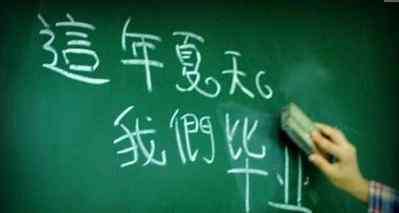 這年夏天。
我們毕业